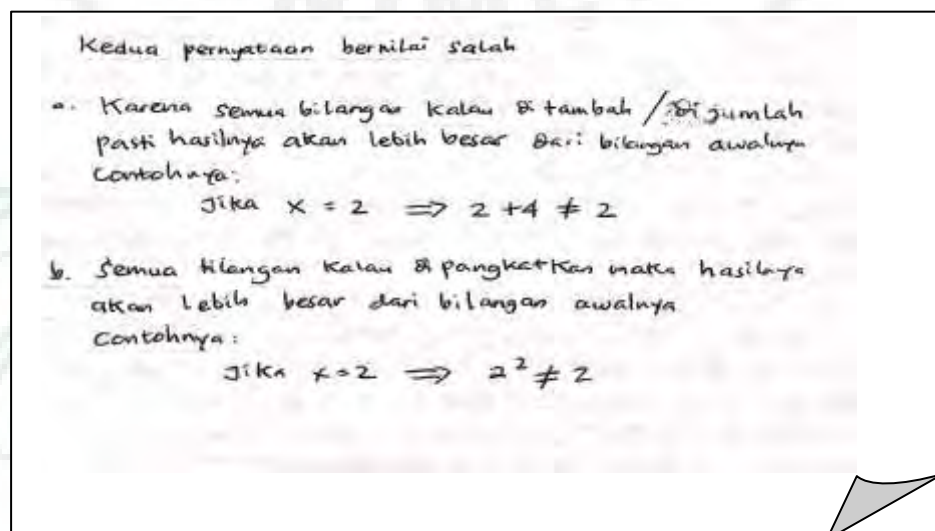 Kedua pernyataan bernilai salah
a. Karena semua bilangan kalau di tambah / Di jumlah
pasti hasilnya akan lebih besar dari bilangan awalnya
Contohnya:
Jika x = 2 ⟹ 2 + 4 ≠ 2
b. Semua bilangan kalau di pangkatkan maka hasilnya
akan lebih besar dari bilangan awalnya
Contohnya:
Jika x = 2 ⟹ 2² ≠ 2